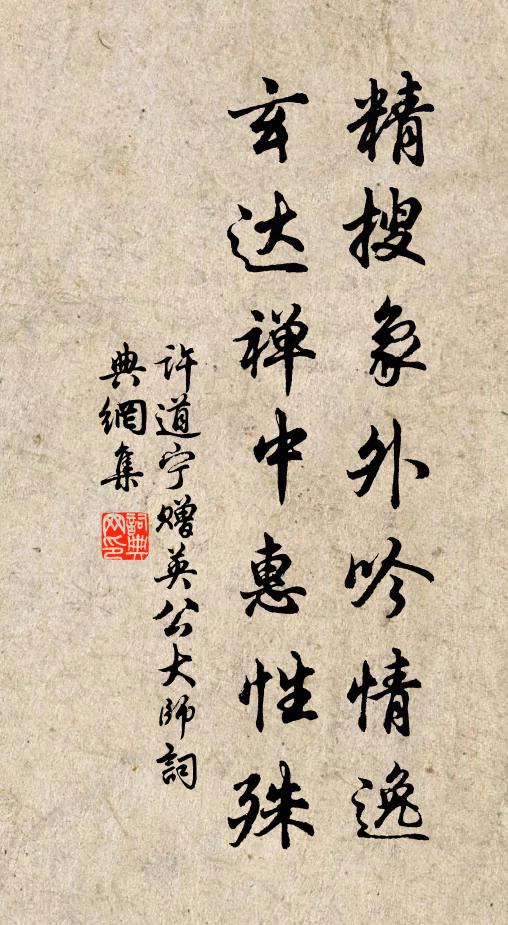 精搜象外吟情逸
玄达禅中惠性殊
许道宁赠英公大師詞
典網集
詞典网印